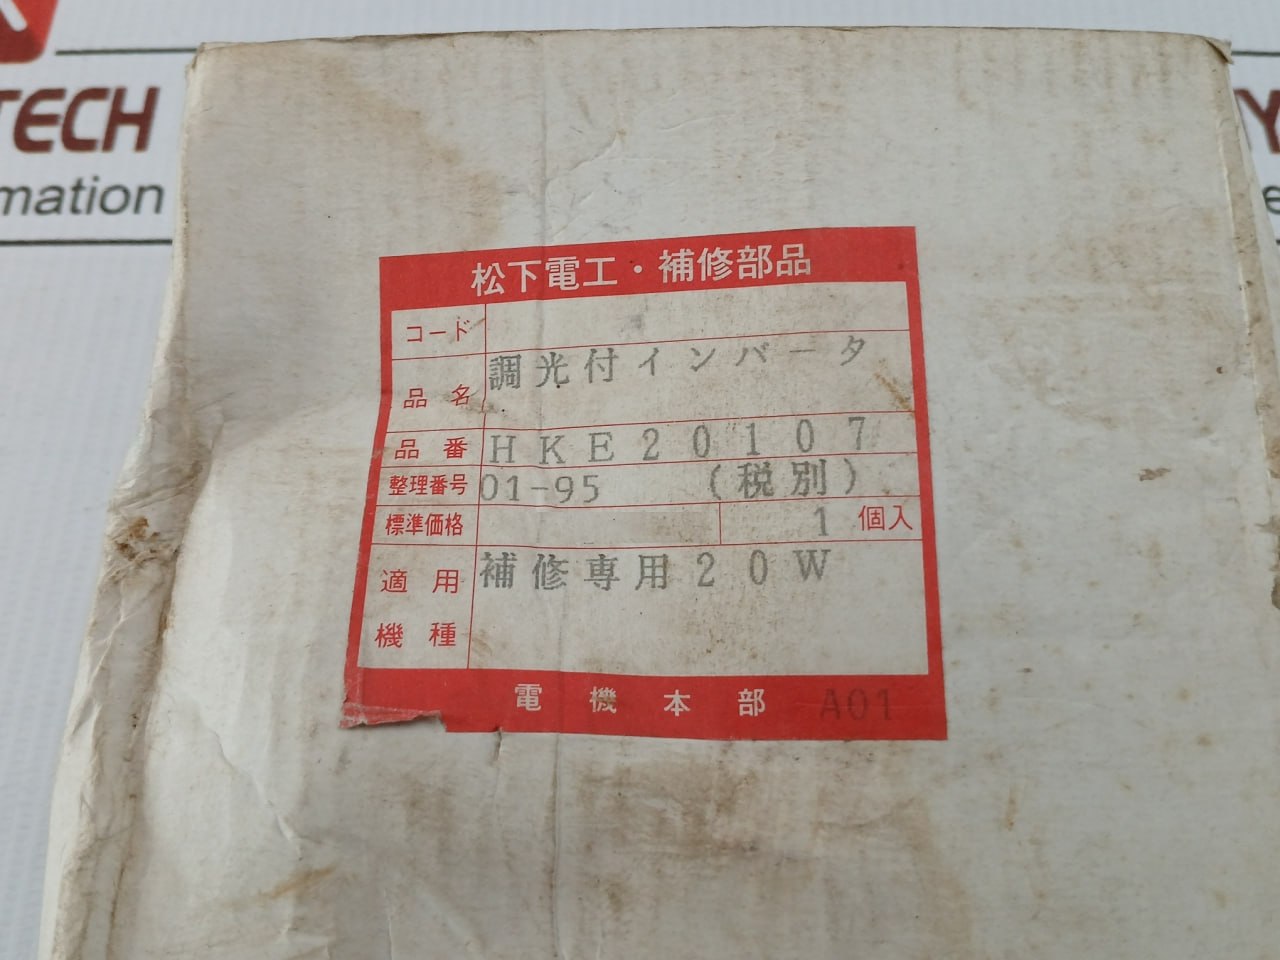 TECH
mation
松下電工・補修部品
コード
品名 調光付インバータ
品番 HKE20107
整理番号 01-95 (税別)
標準価格 1 個入
適用 補修専用20W
機種
電機本部 A01